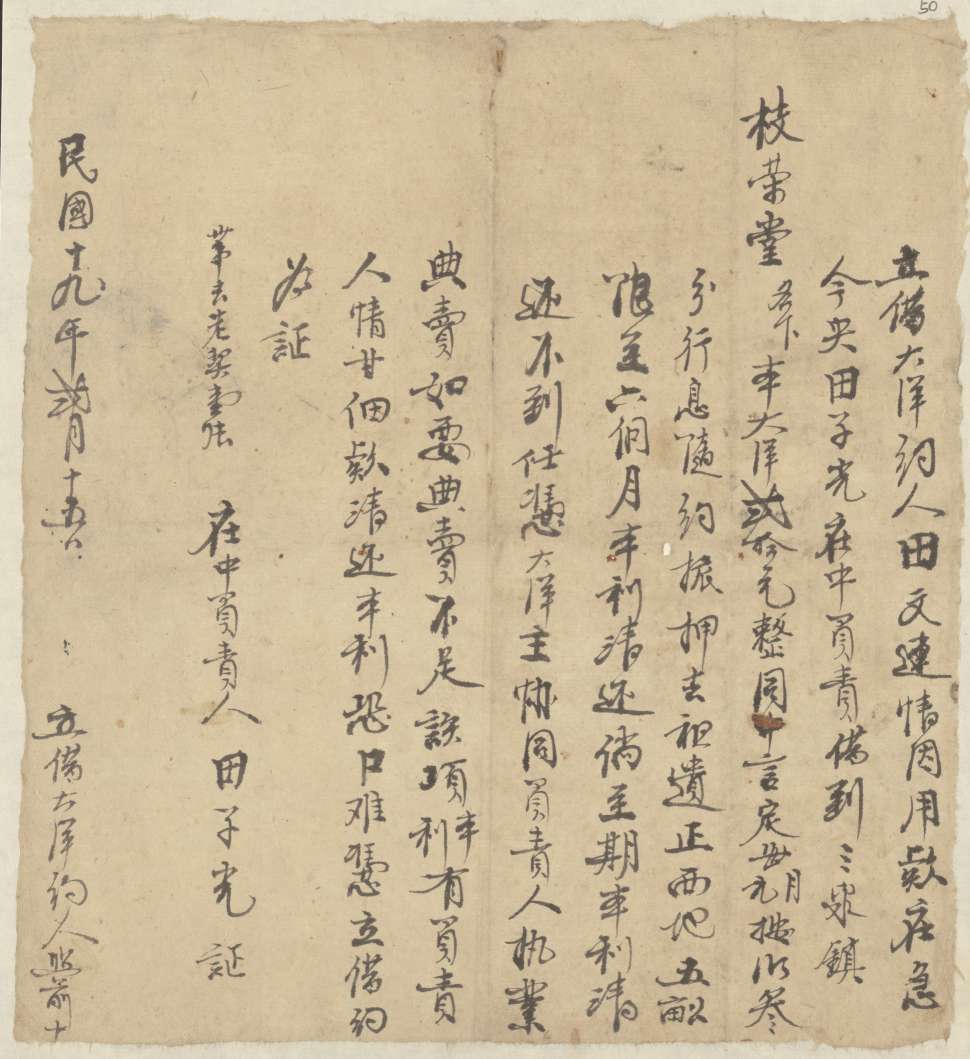 50
立借大洋約人田文連情因用欵在急
今央田子光在中負責借到三泉鎮
枝荣堂名下本大洋貳拾元整同中言定每元每月按洋叁
分行息隨約撥押去祖遺正西地五畝
限至六個月本利清还倘至期本利清
还不到任憑大洋主協同負責人執業
典賣如要典賣不足該項本利有負責
人情甘佃欵清还本利恐口难憑立借約
為証
帶去老契壹張 在中負責人田子光 証
民國十九年貳月十五日 立借大洋約人照前十